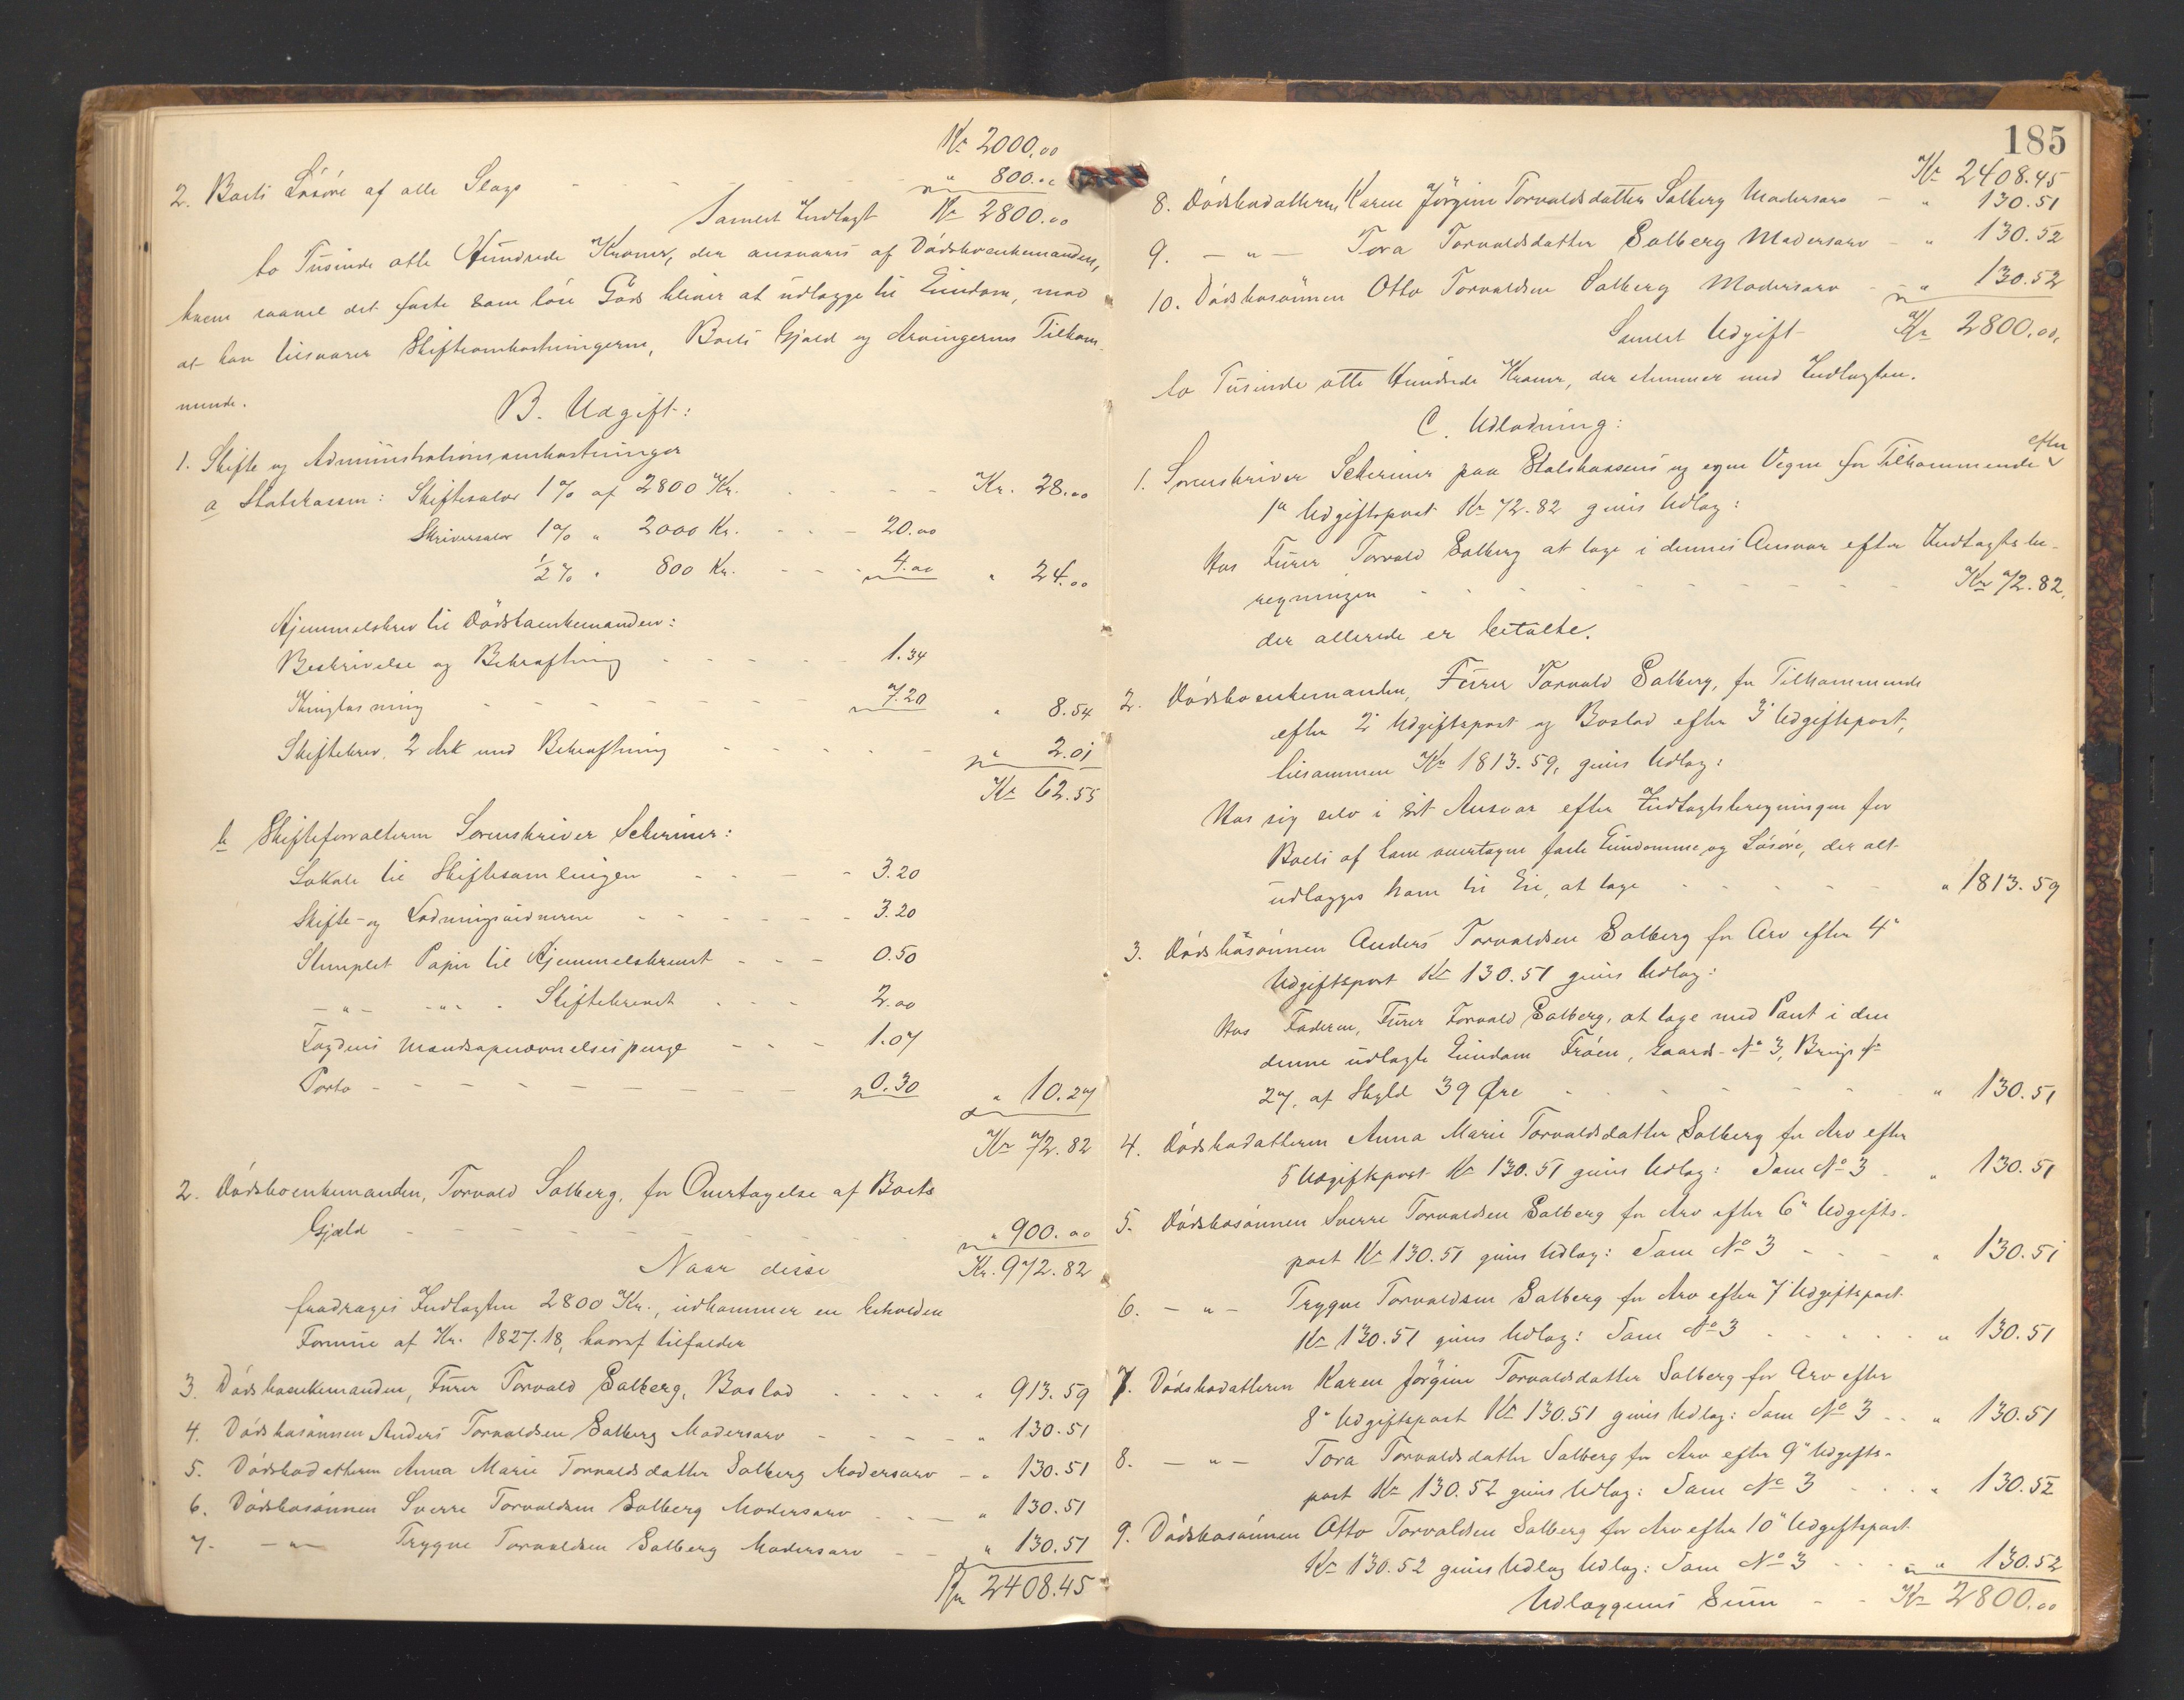 Kr 2000.00
2. Boets Lösöre af alle Slags - - - - - " 800.00
Samlet Indtægt Kr 2800.00
to Tusinde otte Hundrede Kroner, der ansvares af Dödsboenkemanden,
hvem saavel det faste som löse Gods bliver at udlægge til Eiendom, mod
at han tilsvarer Skifteomkostningerne, Boets Gjæld og Arvingernes Tilkom-
mende.
B. Udgift:
1. Skifte og Administrationsomkostninger
a Statskassen: Skiftesalær 1% af 2800 Kr. - - - - Kr. 28.00
Skriversalær 1% " 2000 Kr. - - - 20.00
1/2% " 800 Kr. - - - 4.00 " 24.00
Hjemmelsbrev til Dödsboenkemanden:
Beskrivelse og Bekræftning - - - - - 1.34
Thinglæsning - - - - - - 7.20 " 8.54
Skiftebrev, 2 Ark med Bekræftning - - - - - " 2.01
Kr 62.55
b Skifteforvalteren Sorenskriver Scheriner:
Lokale til Skiftesamlingen - - - - 3.20
Skifte- og Lodningsvidnerne - - - - - 3.20
Stemplet Papir til Hjemmelsbrevet - - - 0.50
- " - - " - - Skiftebrevet - - - 2.00
Fogdens Mandsopnævnelsespenge - - - 1.07
Porto - - - - - - - - 0.30 " 10.27
Kr 72.82
2. Dödsboenkemanden, Torvald Solberg, for Overtagelse af Boets
Gjæld - - - - - - - " 900.00
Naar disse Kr. 972.82
fradrages Indtægten 2800 Kr., udkommer en beholden
Formue af Kr. 1827.18, hvoraf tilfalder
3. Dödsboenkemanden, Furer Torvald Solberg, Boslod - - - - - " 913.59
4. Dödsbosönnen Anders Torvaldsen Solberg Modersarv - - - - " 130.51
5. Dödsbodatteren Anna Marie Torvaldsdatter Solberg Modersarv - " 130.51
6. Dödsbosönnen Sverre Torvaldsen Solberg Modersarv - - - " 130.51
7. - " - Trygve Torvaldsen Solberg Modersarv - - " 130.51
Kr 2408.45
185
Kr 2408.45
8. Dödsbodatteren Karen Jörgine Torvaldsdatter Solberg Modersarv - " 130.51
9. - " - Tora Torvaldsdatter Solberg Modersarv - " 130.52
10. Dödsbosönnen Otto Torvaldsen Solberg Modersarv - - " 130.52
Samlet Udgift Kr 2800.00,
to Tusinde otte Hundrede Kroner, der stemmer med Indtægten.
C. Udlodning:
1. Sorenskriver Scheriner paa Statskassens og egne Vegne for Tilkommende efter
1ª Udgiftspost Kr 72.82 gives Udlæg:
Hos Furer Torvald Solberg at tage i dennes Ansvar efter Indtægtsbe-
regningen - - - - - - - - Kr 72.82,
der allerede er betalte.
2. Dödsboenkemanden, Furer Torvald Solberg, for Tilkommende
efter 2" Udgiftspost og Boslod efter 3" Udgiftspost,
tilsammen Kr 1813.59, gives Udlæg:
Hos sig selv i sit Ansvar efter Indtægtsberegningen for
Boets af ham overtagne faste Eiendomme og Lösöre, der alt
udlægges ham til Eie, at tage - - - - - " 1813.59
3. Dödsbosönnen Anders Torvaldsen Solberg for Arv efter 4"
Udgiftspost Kr 130.51 gives Udlæg:
Hos Faderen, Furer Torvald Solberg, at tage med Pant i den
denne udlagte Eiendom Fröen, Gaards-No 3, Brugs No
27, af Skyld 39 Øre - - - - - - - " 130.51
4. Dödsbodatteren Anna Marie Torvaldsdatter Solberg for Arv efter
5 Udgiftspost Kr 130.51 gives Udlæg: Som No 3 - " 130.51
5. Dödsbosönnen Sverre Torvaldsen Solberg for Arv efter 6" Udgifts-
post Kr 130.51 gives Udlæg: Som No 3 - - - " 130.51
6. - " - Trygve Torvaldsen Solberg for Arv efter 7" Udgiftspost
Kr 130.51 gives Udlæg: Som No 3 - - - - - " 130.51
7. Dödsbodatteren Karen Jörgine Torvaldsdatter Solberg for Arv efter
8" Udgiftspost Kr 130.51 gives Udlæg: Som No 3 - - " 130.51
8. - " - Tora Torvaldsdatter Solberg for Arv efter 9" Udgifts-
post Kr 130.52 gives Udlæg: Som No 3 - - - " 130.52
9. Dödsbosönnen Otto Torvaldsen Solberg for Arv efter 10" Udgiftspost
Kr 130.52 gives Udlæg Udlæg: Som No 3 - - - " 130.52
Udlæggenes Sum - - Kr 2800.00